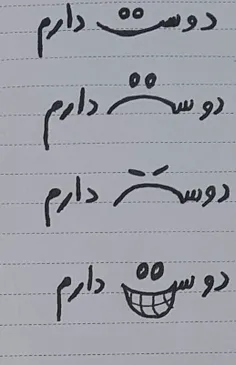 دوست دارم
دوس دارم
دوس دارم
دوس دارم